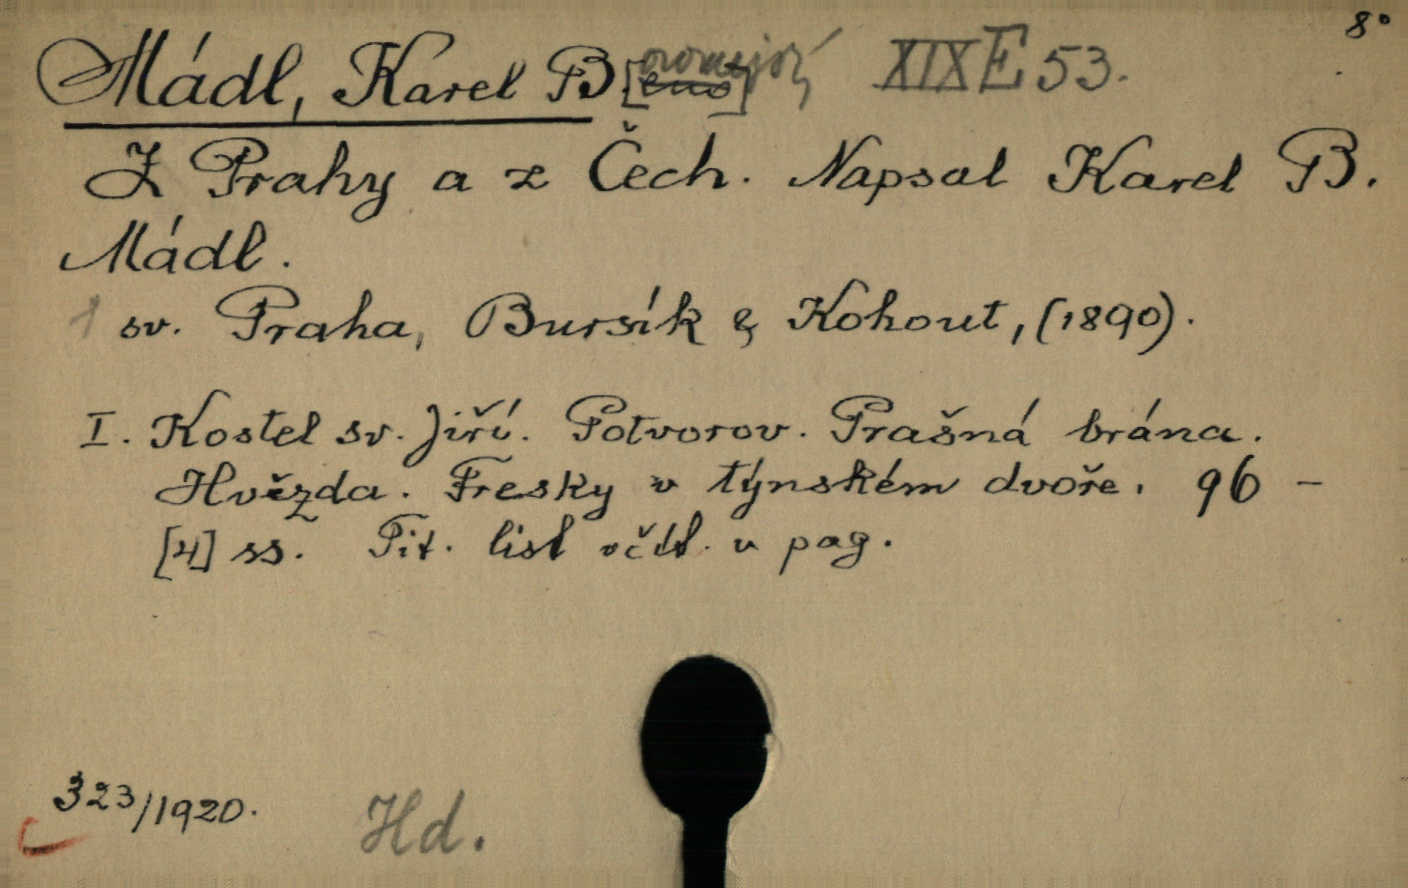 8°
Mádl, Karel B[oromejský] XIX E 53.
Z Prahy a z Čech. Napsal Karel B.
Mádl.
1 sv. Praha, Bursík & Kohout, (1890).
I. Kostel sv. Jiří. Potvorov. Prašná brána.
Hvězda. Fresky v týnském dvoře. 96 –
[4] ss. Tit. list včít. v pag.
323/1920. Hd.